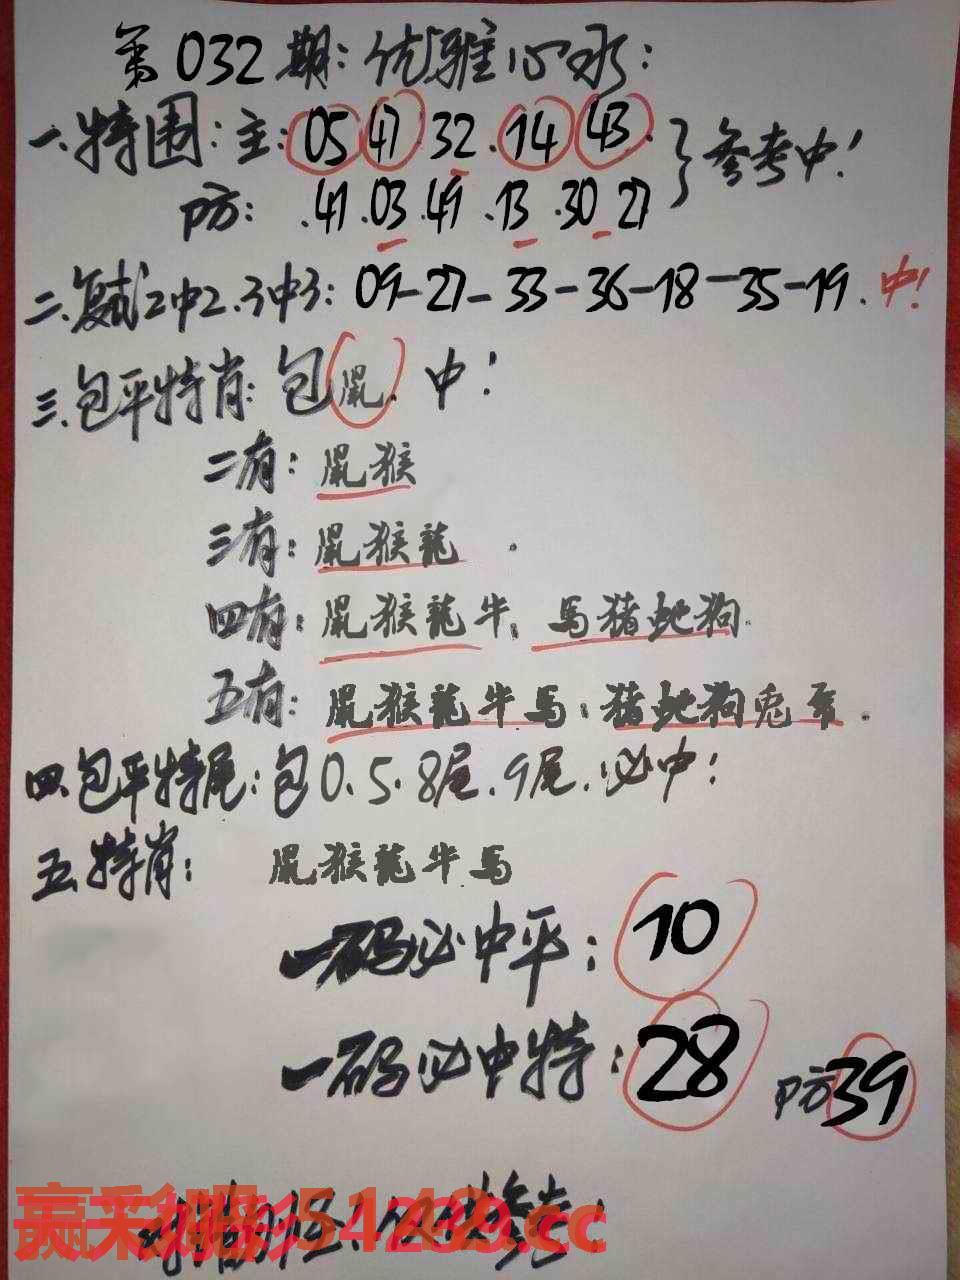 第032期:优雅心水:
一.特围:主:05 47 32.14 43.
防:.41.03.49.13.30 27
}参考中!
二.复式2中2.3中3:09-27-33-36-18-35-19.中!
三.包平特肖:包鼠.中!
二有:鼠猴
三有:鼠猴龍.
四有:鼠猴龍牛;馬猪蛇狗.
五有:鼠猴龍牛馬;猪蛇狗兔羊.
四.包平特尾:包0.5.8尾.9尾.必中!
五.特肖:鼠猴龍牛馬
一码必中平:10
一码必中特:28 防39
54249.cc